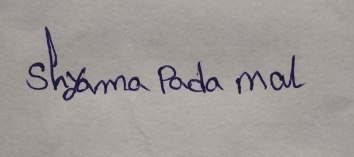 Shyama Pada mal